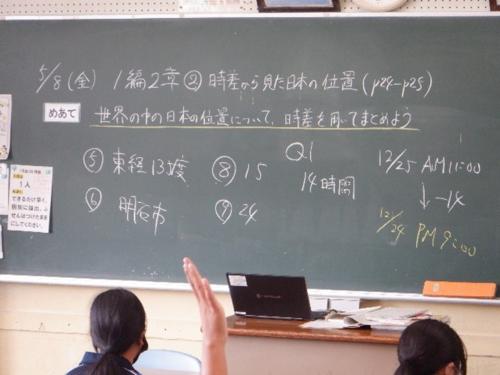 5/8(金) 1編2章② 時差から見た日本の位置(p24-p25)
めあて 世界の中の日本の位置について、時差を用いてまとめよう
⑤ 東経135度
⑥ 明石市
⑧ 15
⑨ 24
Q1
14時間
12/25 AM11:00
↓-14
12/24 PM9:00
1人
できるだけ早く、